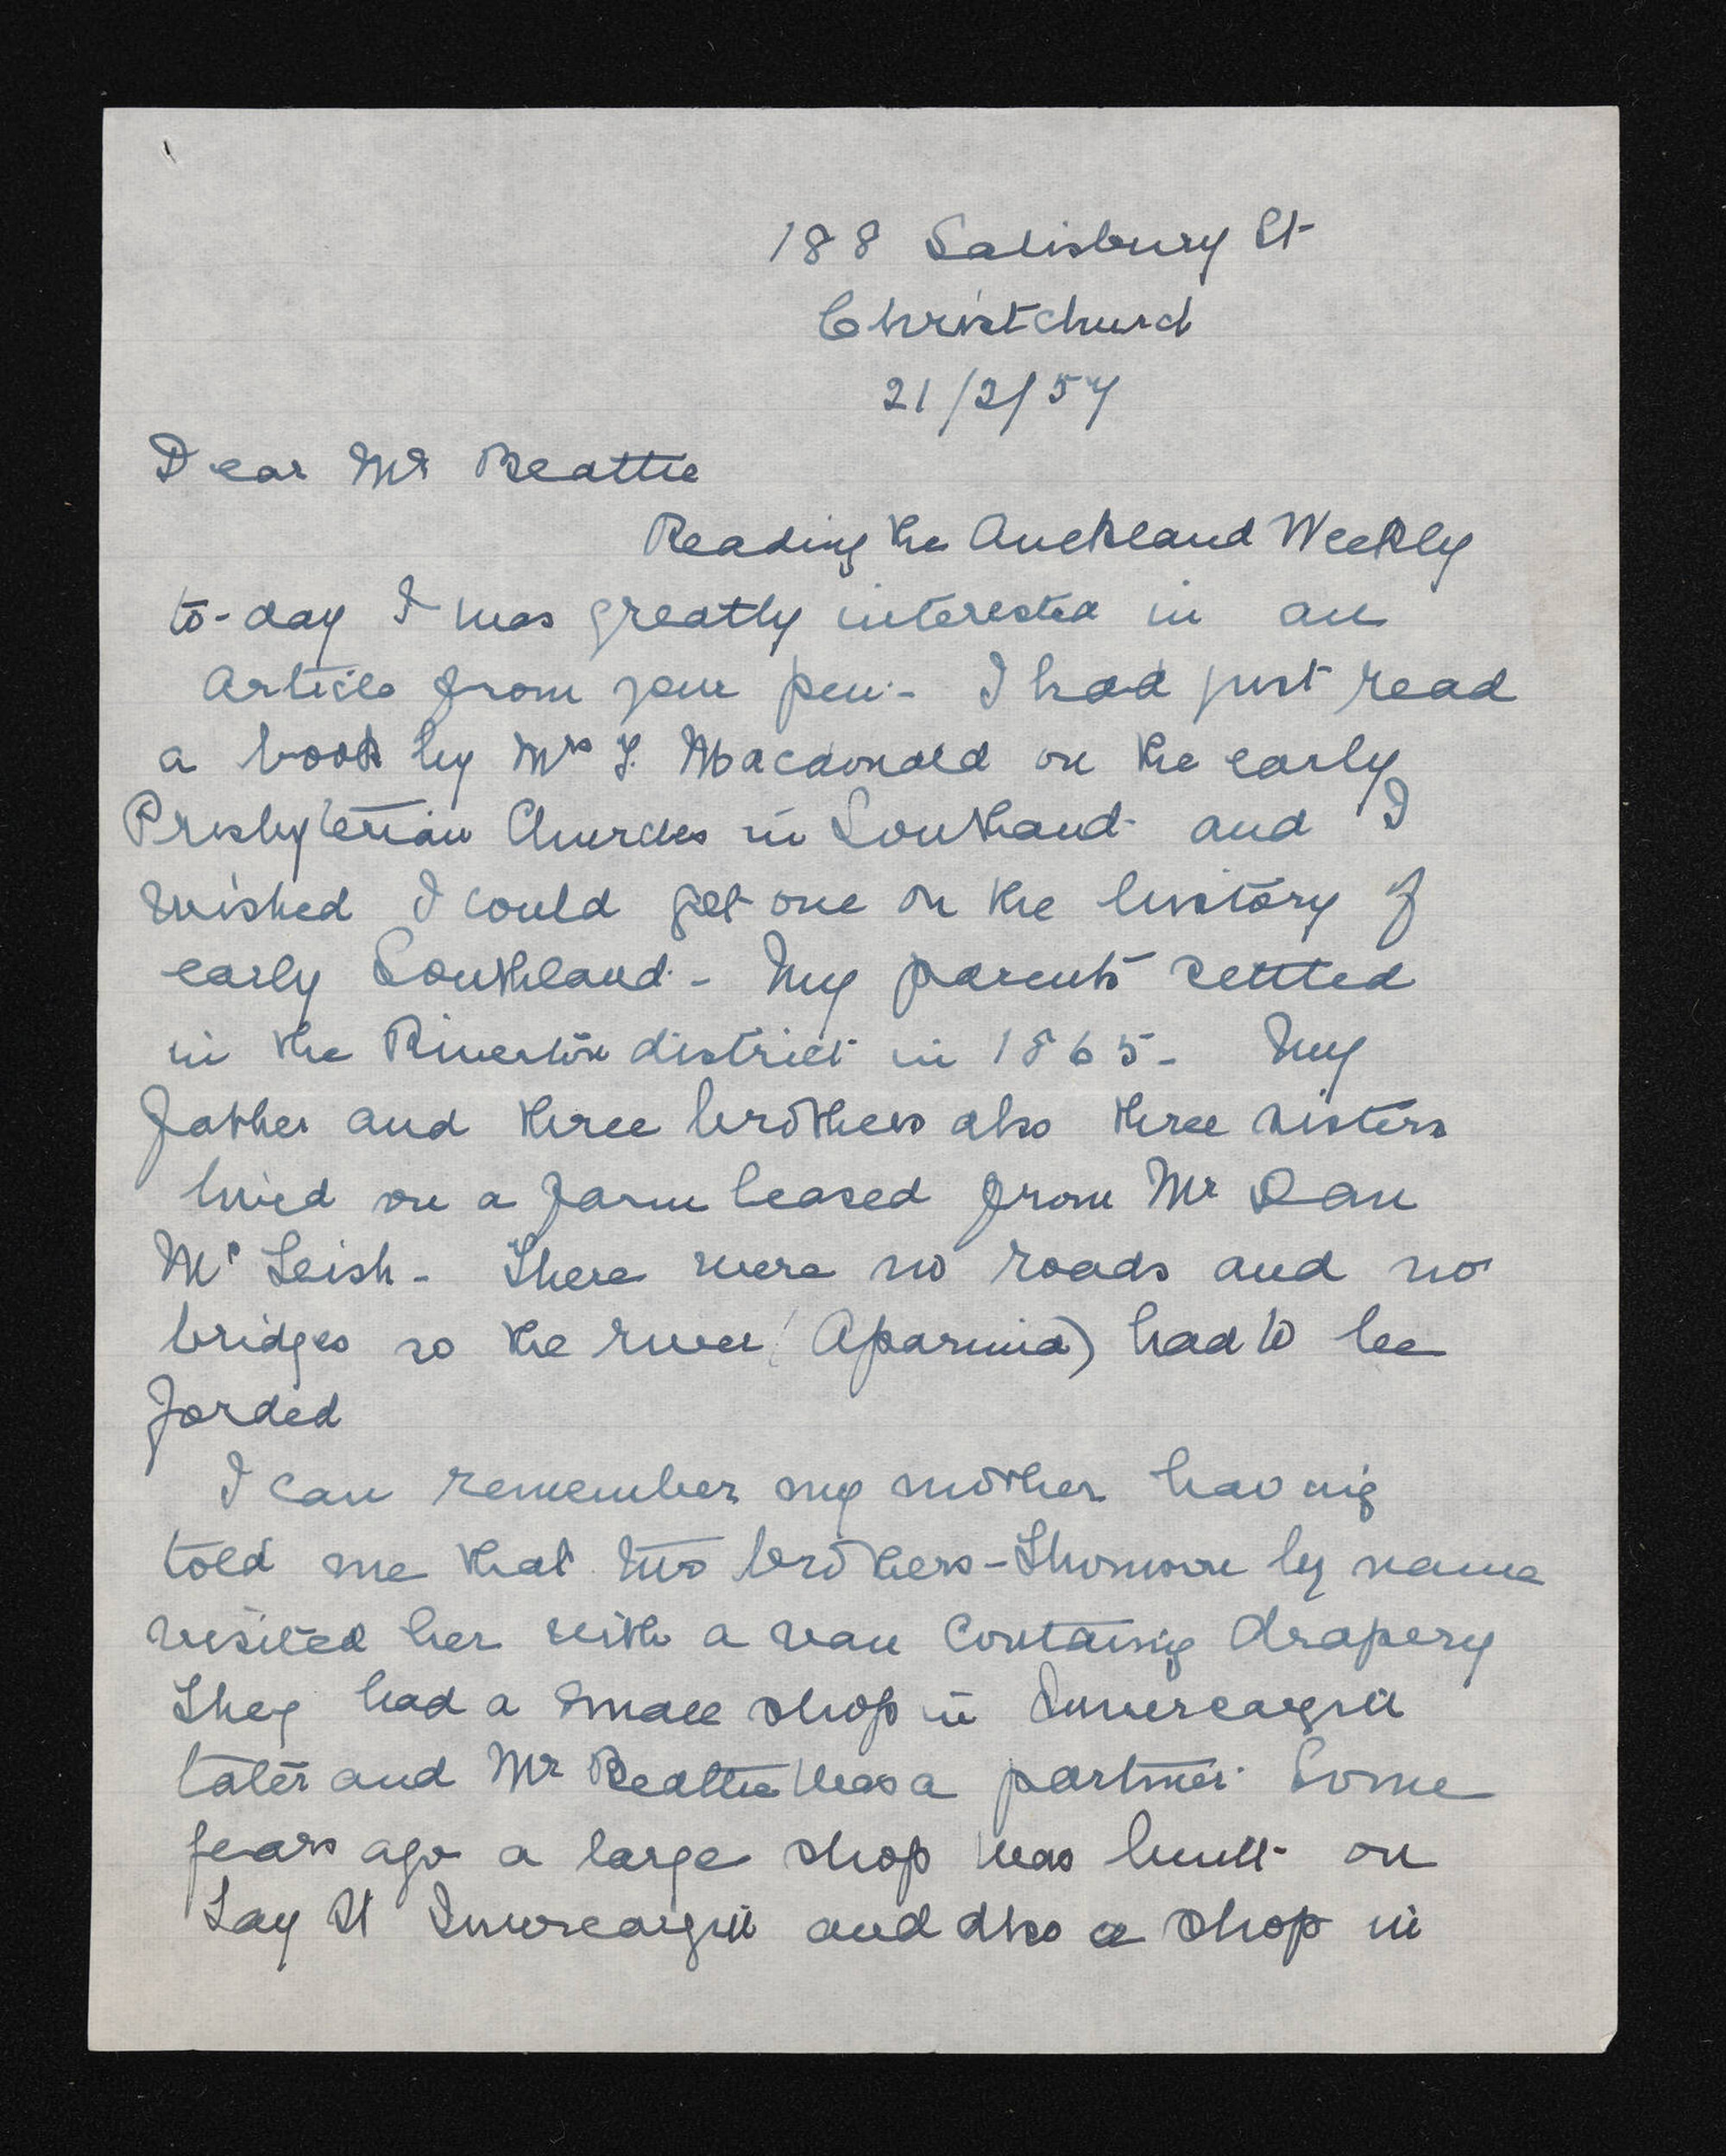 188 Salisbury St
Christchurch
21/2/57
Dear Mr Beattie
Reading the Auckland Weekly
to-day I was greatly interested in an
Article from your pen - I had just read
a book by Mrs F. Macdonald on the early
Presbyterian Churches in Southland and I
wished I could get one on the history of
early Southland - My parents settled
in the Riverton district in 1865 - My
father and three brothers also three sisters
lived on a farm leased from Mr Dan
McLeish - There were no roads and no
bridges so the river (Aparima) had to be
forded
I can remember my mother having
told me that two brothers - Thomson by name
visited her with a van containing drapery
They had a small shop in Invercargill
later and Mr Beattie was a partner. Some
years ago a large shop was built on
Tay St Invercargill and also a shop in